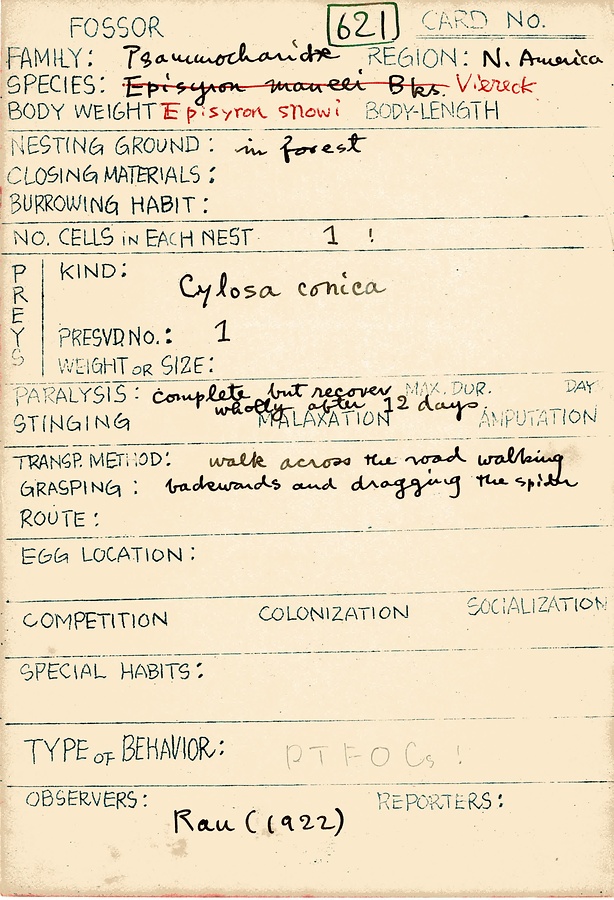 FOSSOR 621 CARD NO.
FAMILY: Psammocharidæ REGION: N. America
SPECIES: Episyron maneei Bks. Viereck
BODY WEIGHT Episyron snowi BODY-LENGTH
NESTING GROUND: in forest
CLOSING MATERIALS:
BURROWING HABIT:
NO. CELLS IN EACH NEST 1 !
PREYS
KIND:
Cylosa conica
PRESVD NO.: 1
WEIGHT OR SIZE:
PARALYSIS: complete but recover MAX. DUR. DAY
wholly after 12 days
STINGING MALAXATION AMPUTATION
TRANSP. METHOD: walk across the road walking
GRASPING: backwards and dragging the spider
ROUTE:
EGG LOCATION:
COMPETITION COLONIZATION SOCIALIZATION
SPECIAL HABITS:
TYPE OF BEHAVIOR: PTFOCs!
OBSERVERS: REPORTERS:
Rau (1922)